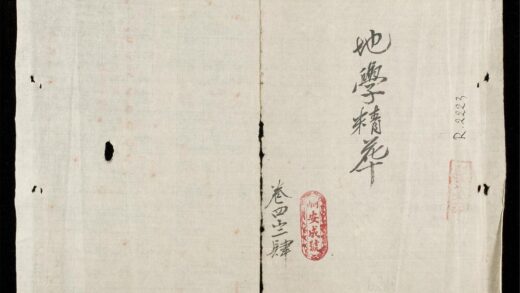 地學精華
R.2223
卷四之二肆
安成號